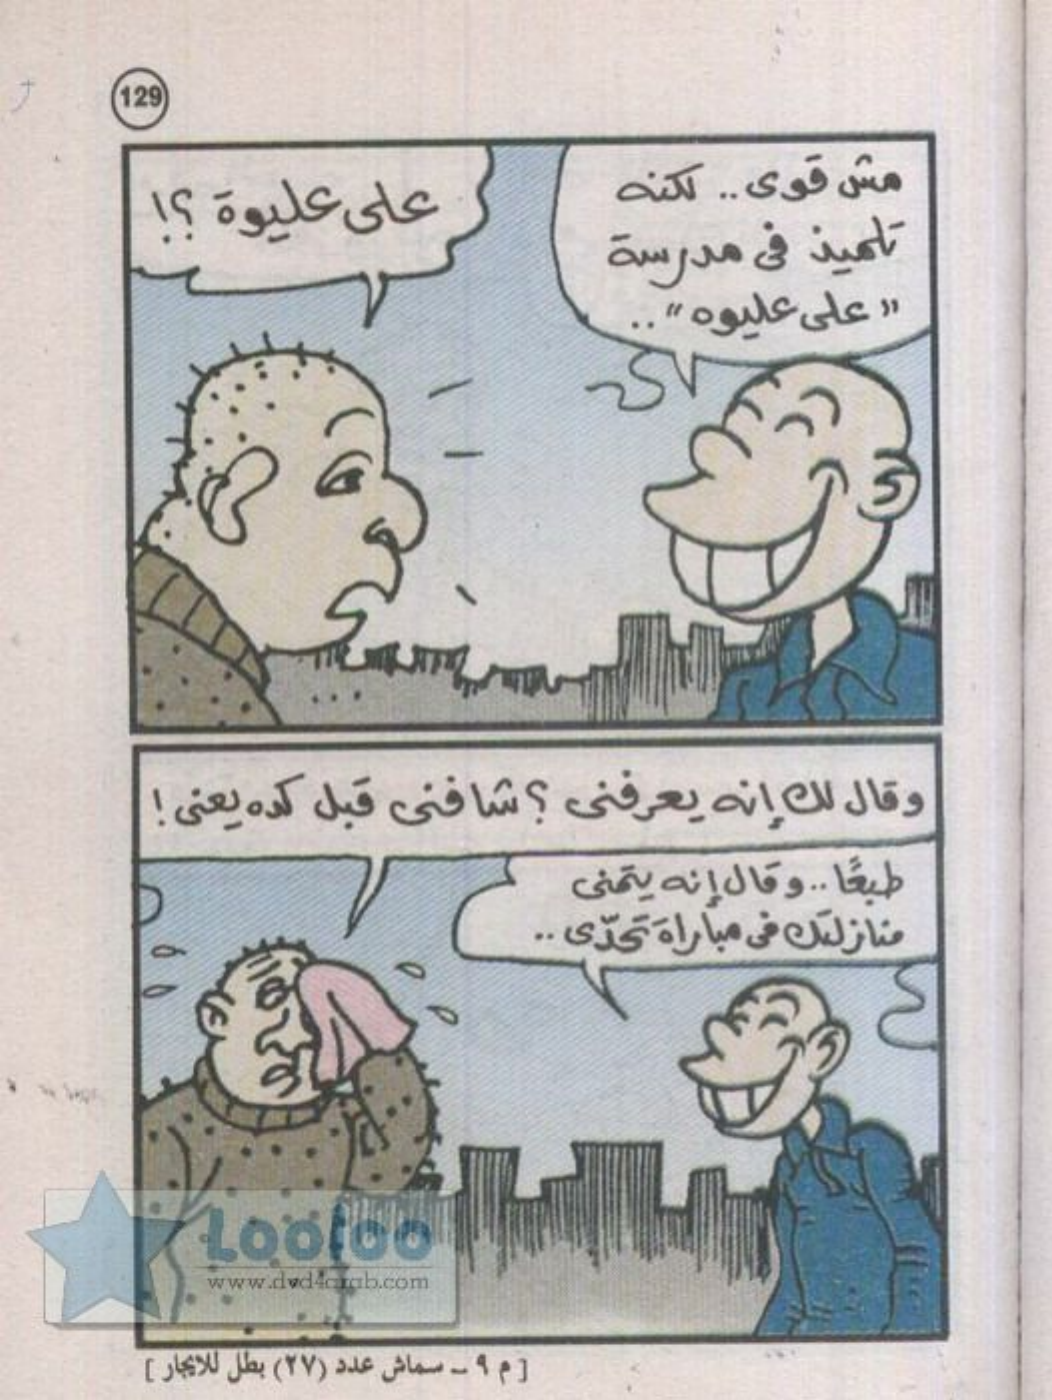 129
مش قوى.. لكنه
تلميذ فى مدرسة
«على عليوه»..
على عليوة ؟!
وقال لك إنه يعرفنى ؟ شافنى قبل كده يعنى !
طبعًا.. وقال إنه يتمنى
منازلتك فى مباراة تحدّى ..
Looloo
www.dvd4arab.com
[ م ٩ ـ سماش عدد (٢٧) بطل للايجار ]